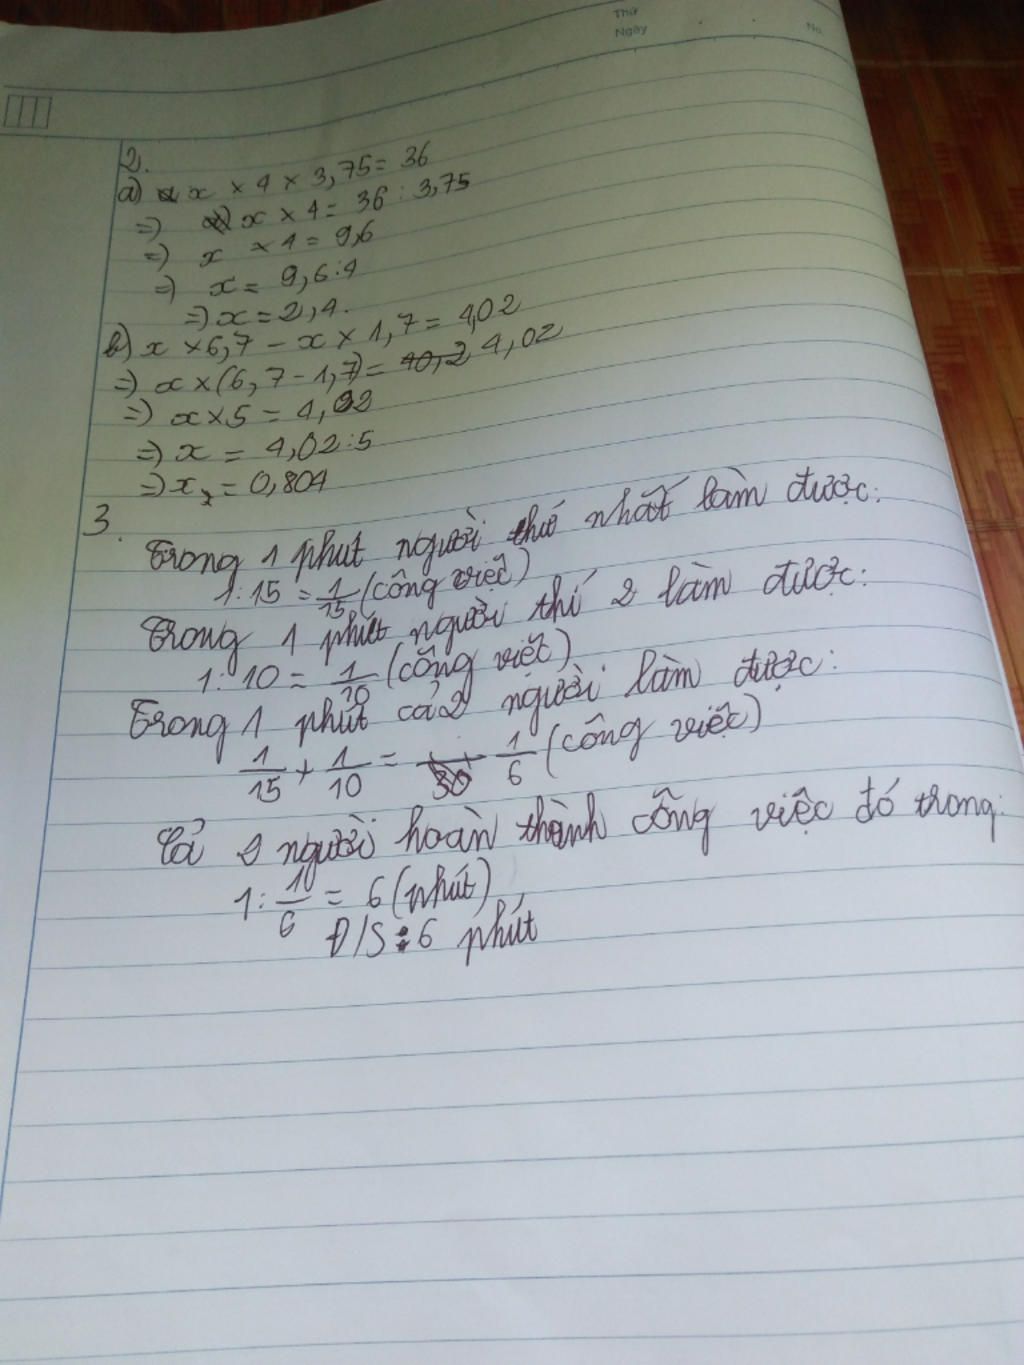 Thứ
Ngày
No.
2.
a) x × 4 × 3,75 = 36
=) x × 4 = 36 : 3,75
=) x × 4 = 9,6
=) x = 9,6 : 4
=) x = 2,4.
b) x × 6,7 - x × 1,7 = 4,02
=) x × (6,7 - 1,7) = 40,2 4,02
=) x × 5 = 4,02
=) x = 4,02 : 5
=) x = 0,804
3.
Trong 1 phut người thứ nhất làm được:
1 : 15 = 1/15 (công việc)
Trong 1 phút người thí 2 làm được:
1 : 10 = 1/10 (công việc)
Trong 1 phút cả 2 người làm được:
1/15 + 1/10 = 1/6 (công việc)
Cả 2 người hoàn thành công việc đó trong:
1 : 10/6 = 6 (phút)
Đ/S : 6 phút